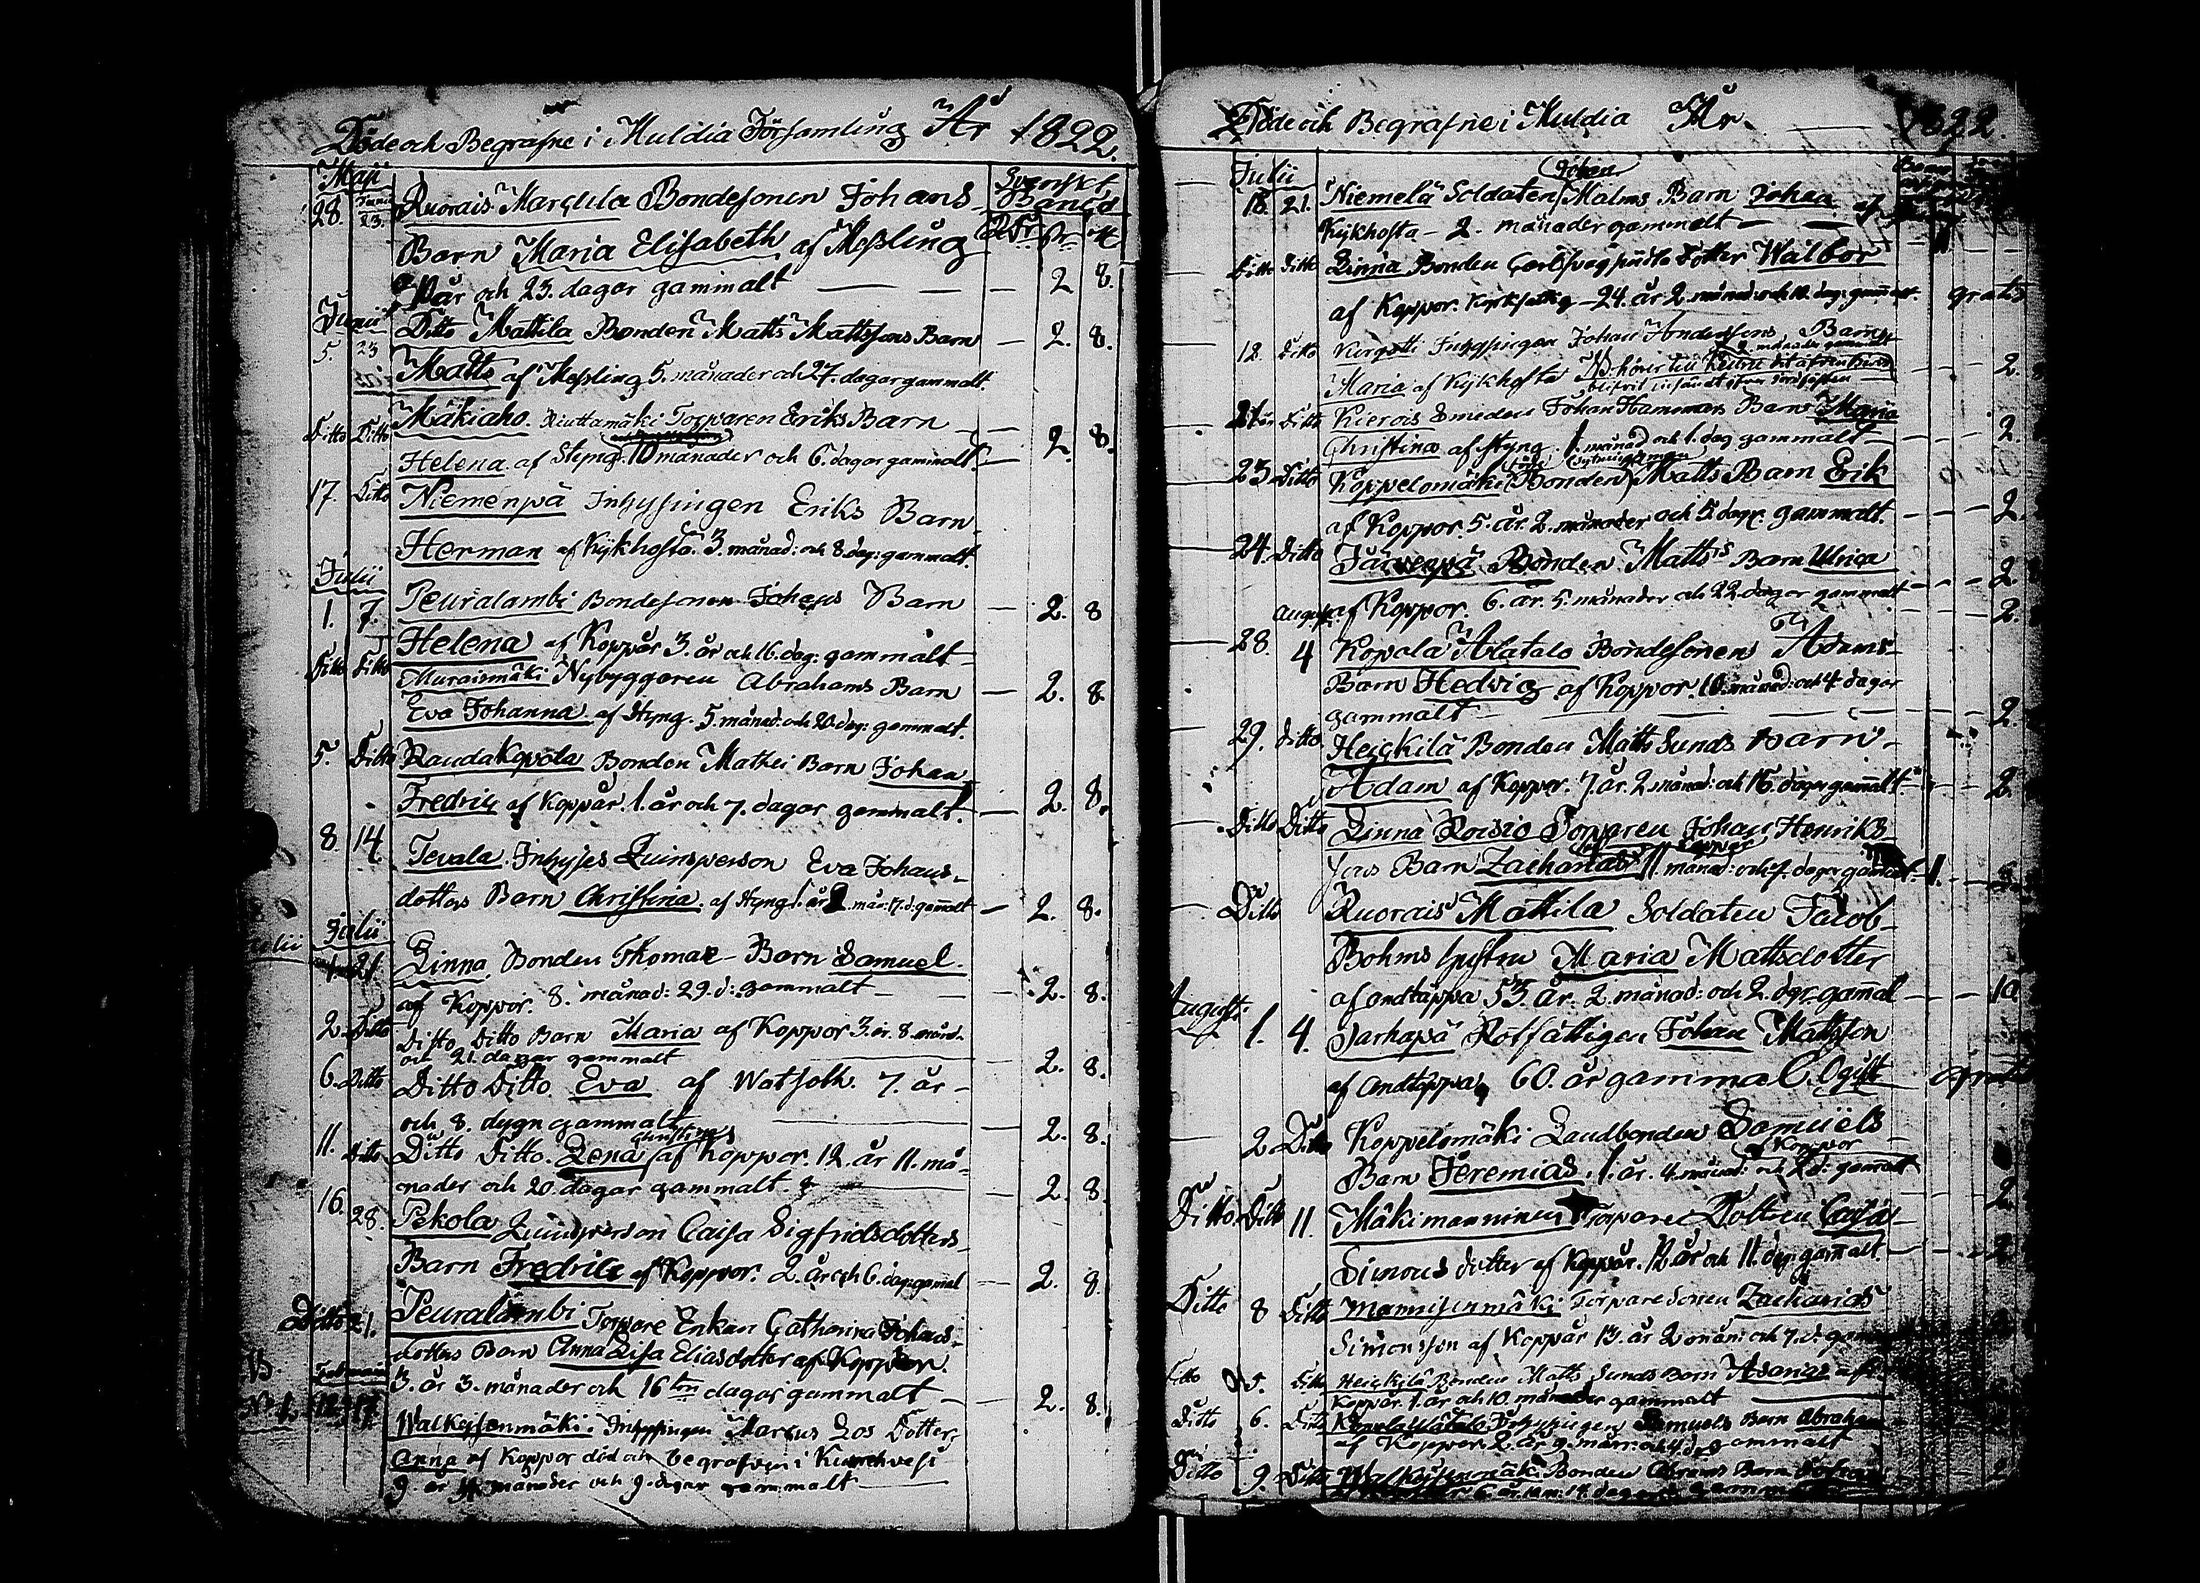 Döde och Begrafne i Muldia Församling År 1822.
Maji Svenskt
Banco
28. Junii 23. Ruorais Marttila Bondesonen Johans
Barn Maria Elisabeth af Messling
år och 23. dagar gammalt — — — 2 8.
Junii
5. 23 Ditto Mattila Bonden Matts Mattssons Barn — 2. 8.
Matts af Messling 5. månader och 27. dagar gammalt.
Ditto Ditto Mäkiaho. Torparen Eriks Barn —
Helena af Styng. 10 månader och 6. dagar gammalt — 2. 8.
17. Ditto Niemenpä Inhysingen Eriks Barn
Herman af Kykhosta. 3. månad: och 8. dag: gammalt.
Julii
1. 7. Peuralambi Bondesonen Johans Barn — 2. 8
Helena af Koppår 3. år och 16. dag: gammalt
Ditto Ditto Muraismäki Nybyggaren Abrahams Barn — 2. 8.
Eva Johanna af Styng. 5. månad. och 20. dag: gammalt.
5. Ditto Raudakopola Bonden Mathei Barn Johan
Fredric af Koppår. 1. år och 7. dagar gammalt. — 2. 8.
8. 14. Tevala. Inhyses Quinsperson Eva Johans-
dotters Barn Christina. af Styng 1. år . mån: 17. d. gamalt — 2. 8.
Julii
21. Linna Bonden Thomae Barn Samuel.
af Koppor. 8. månad: 29. d: gammalt — 2. 8.
2. Ditto Ditto Ditto Barn Maria af Koppor 3. år. 8. månd.
och 21. dagar gammalt
6. Ditto Ditto Ditto Eva af Watsoth. 7. år — 2. 8.
och 8. dygn gammalt — 2. 8.
Christina
11. Ditto Ditto Ditto. Lena af Koppor. 12. år 11. må-
nader och 20. dagar gammalt. — 2. 8.
16. 28. Pekola Quinsperson Caisa Sigfridsdotters
Barn Fredric af Koppor. 2. år och 6. dag: gammal — 2. 8.
Ditto 21. Peuralambi Torpare Enkan Catharina Johans-
dotters Barn Anna Lisa Eliasdotter af Koppor.
3. år 3. månader och 16 dagar gammalt — 2. 8.
Walkeisenmäki. Inhysingen Marcus Los Dotter
Anna af Koppor död och begrafven i
9. år månader och 9. dagar gammalt
Döde och Begrafne i Muldia År. — 1822.
Julii Johan
18. 21. Niemelä Soldaten Malms Barn Johan af
Kykhosta — 2. månader gammalt — —
Ditto Ditto Linna Bonden Dotter Walbor
af Koppor. 24. år 2. månad: och 10. dag: gammal. gratis
12. Ditto Inhysingen Johan Anderssons Barn
Maria af Kykhosta 2.
Ditto Kierois Smeden Johan Hammars Barn Maria
Christina af Styng 1. månad och 1. dag gammalt — 2.
23 Ditto Koppelomäki Bonden Matts Barn Erik
af Koppor. 5. år. 2. månader och 5. dagr. gammalt. — 2.
24. Ditto Järvenpä Bonden Matts Barn Ulrica
af Koppor. 6. år. 5. månader och 22. dagar gammalt — 2.
Augusti 2.
28. 4 Kopola Alatalo Bondesonens Adams
Barn Hedvig af Koppor. 10. månad: och 4. dagar
gammalt — 2.
29. Ditto Heickilä Bonden Matts Sunds Barn
Adam af Koppor. 7. år. 2. månad: och 15. dagar gamalt 2.
Ditto Ditto Linna Torparen Johan Henriks-
sons Barn Zacharias 11 månad: och 7. dagar gammalt 1.
Ditto Ruorais Mattila Soldaten Jacob
Bohms hustru Maria Mattsdotter
af andtäppa 53. år. 2. månad: och 2. dgr. gamal — 10
Augusti
1. 4. Jarhapä Rotfattigen Johan Mattsson
af andtäppa, 60. år gammal. Ogift gratis
2. Ditto Koppelomäki Landbonden Samuels
af Koppor
Barn Jeremias. 1. år. 4. månad: och d: gamalt
2.
Ditto Ditto 11. Mäkimanninen Torpare Dottren Caisa
Simons dotter af Koppår. 12. år och 11. dag: gamalt. 2
Ditto 8 Ditto Mannisenmäki Torpare Sonen Zacharias
Simonsson af Koppår 13. år 2 mån: och 7. d.
Ditto 5. Ditto Heickilä Bonden Matts Sunds Barn af
Koppår. 1. år och 10. månader gammalt
Ditto 6. Ditto Kopola Alatalo Inhysingen Samuels Barn Abraham
af Koppor. 2. år 9. mån: gammalt
Ditto 9. Ditto Walkeisenmäki Bonden Barn